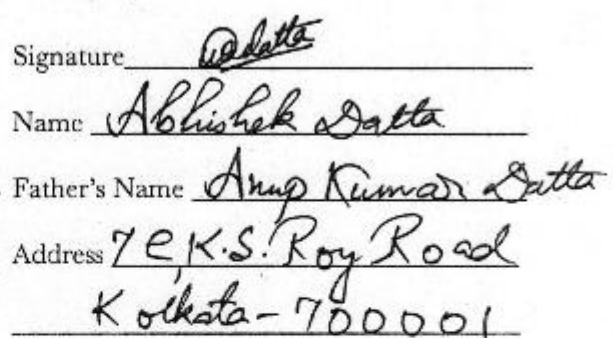 Signature adatta
Name Abhishek Datta
Father's Name Anup Kumar Datta
Address 7C, K.S. Roy Road
Kolkata - 700001